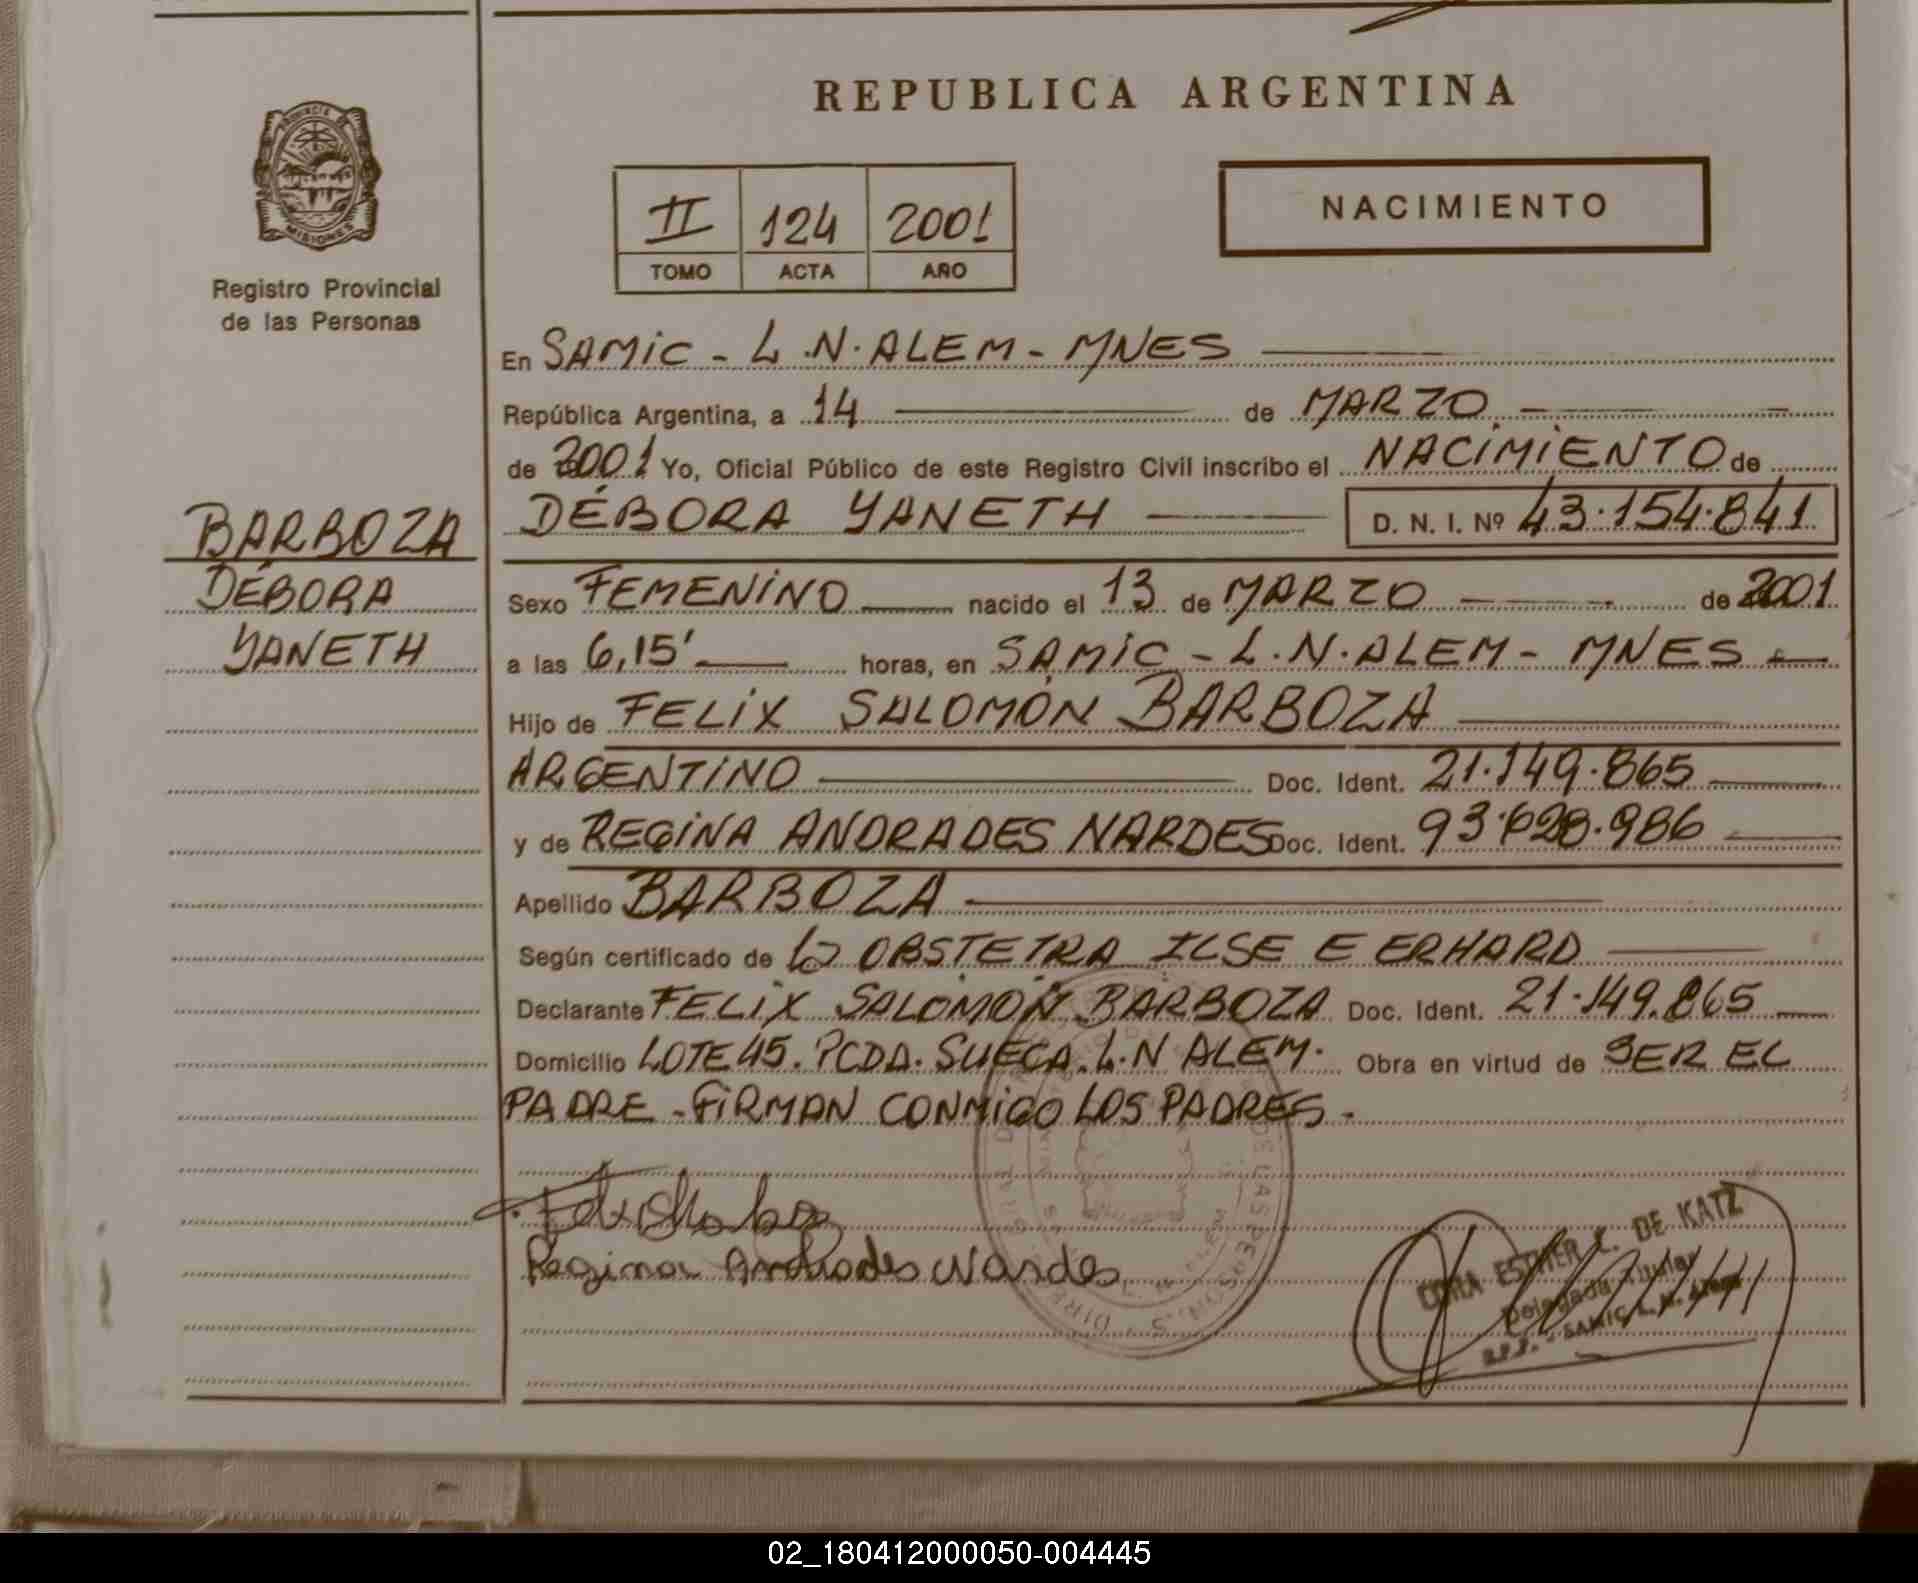 REPUBLICA ARGENTINA
MISIONES
Registro Provincial
de las Personas
II 124 2001
TOMO ACTA AÑO
NACIMIENTO
En SAMIC - L.N.ALEM - MNES
República Argentina, a 14 de MARZO
de 2001 Yo, Oficial Público de este Registro Civil inscribo el NACIMIENTO de
BARBOZA
DÉBORA
YANETH
DÉBORA YANETH D. N. I. Nº 43.154.841
Sexo FEMENINO nacido el 13 de MARZO de 2001
a las 6,15' horas, en SAMIC - L.N.ALEM - MNES
Hijo de FELIX SALOMÓN BARBOZA
ARGENTINO Doc. Ident. 21.149.865
y de REGINA ANDRADES NARDES Doc. Ident. 93.628.986
Apellido BARBOZA
Según certificado de LA OBSTETRA ILSE E ERHARD
Declarante FELIX SALOMÓN BARBOZA Doc. Ident. 21.149.865
Domicilio LOTE 45. PCDA. SUECA. L.N ALEM. Obra en virtud de SER EL
PADRE - FIRMAN CONMIGO LOS PADRES.-
Regina Andrades Nardes
ESTHER DE KATZ
Delegada Titular
SAMIC L. N. Alem
DE LAS PERSONAS
02_180412000050-004445